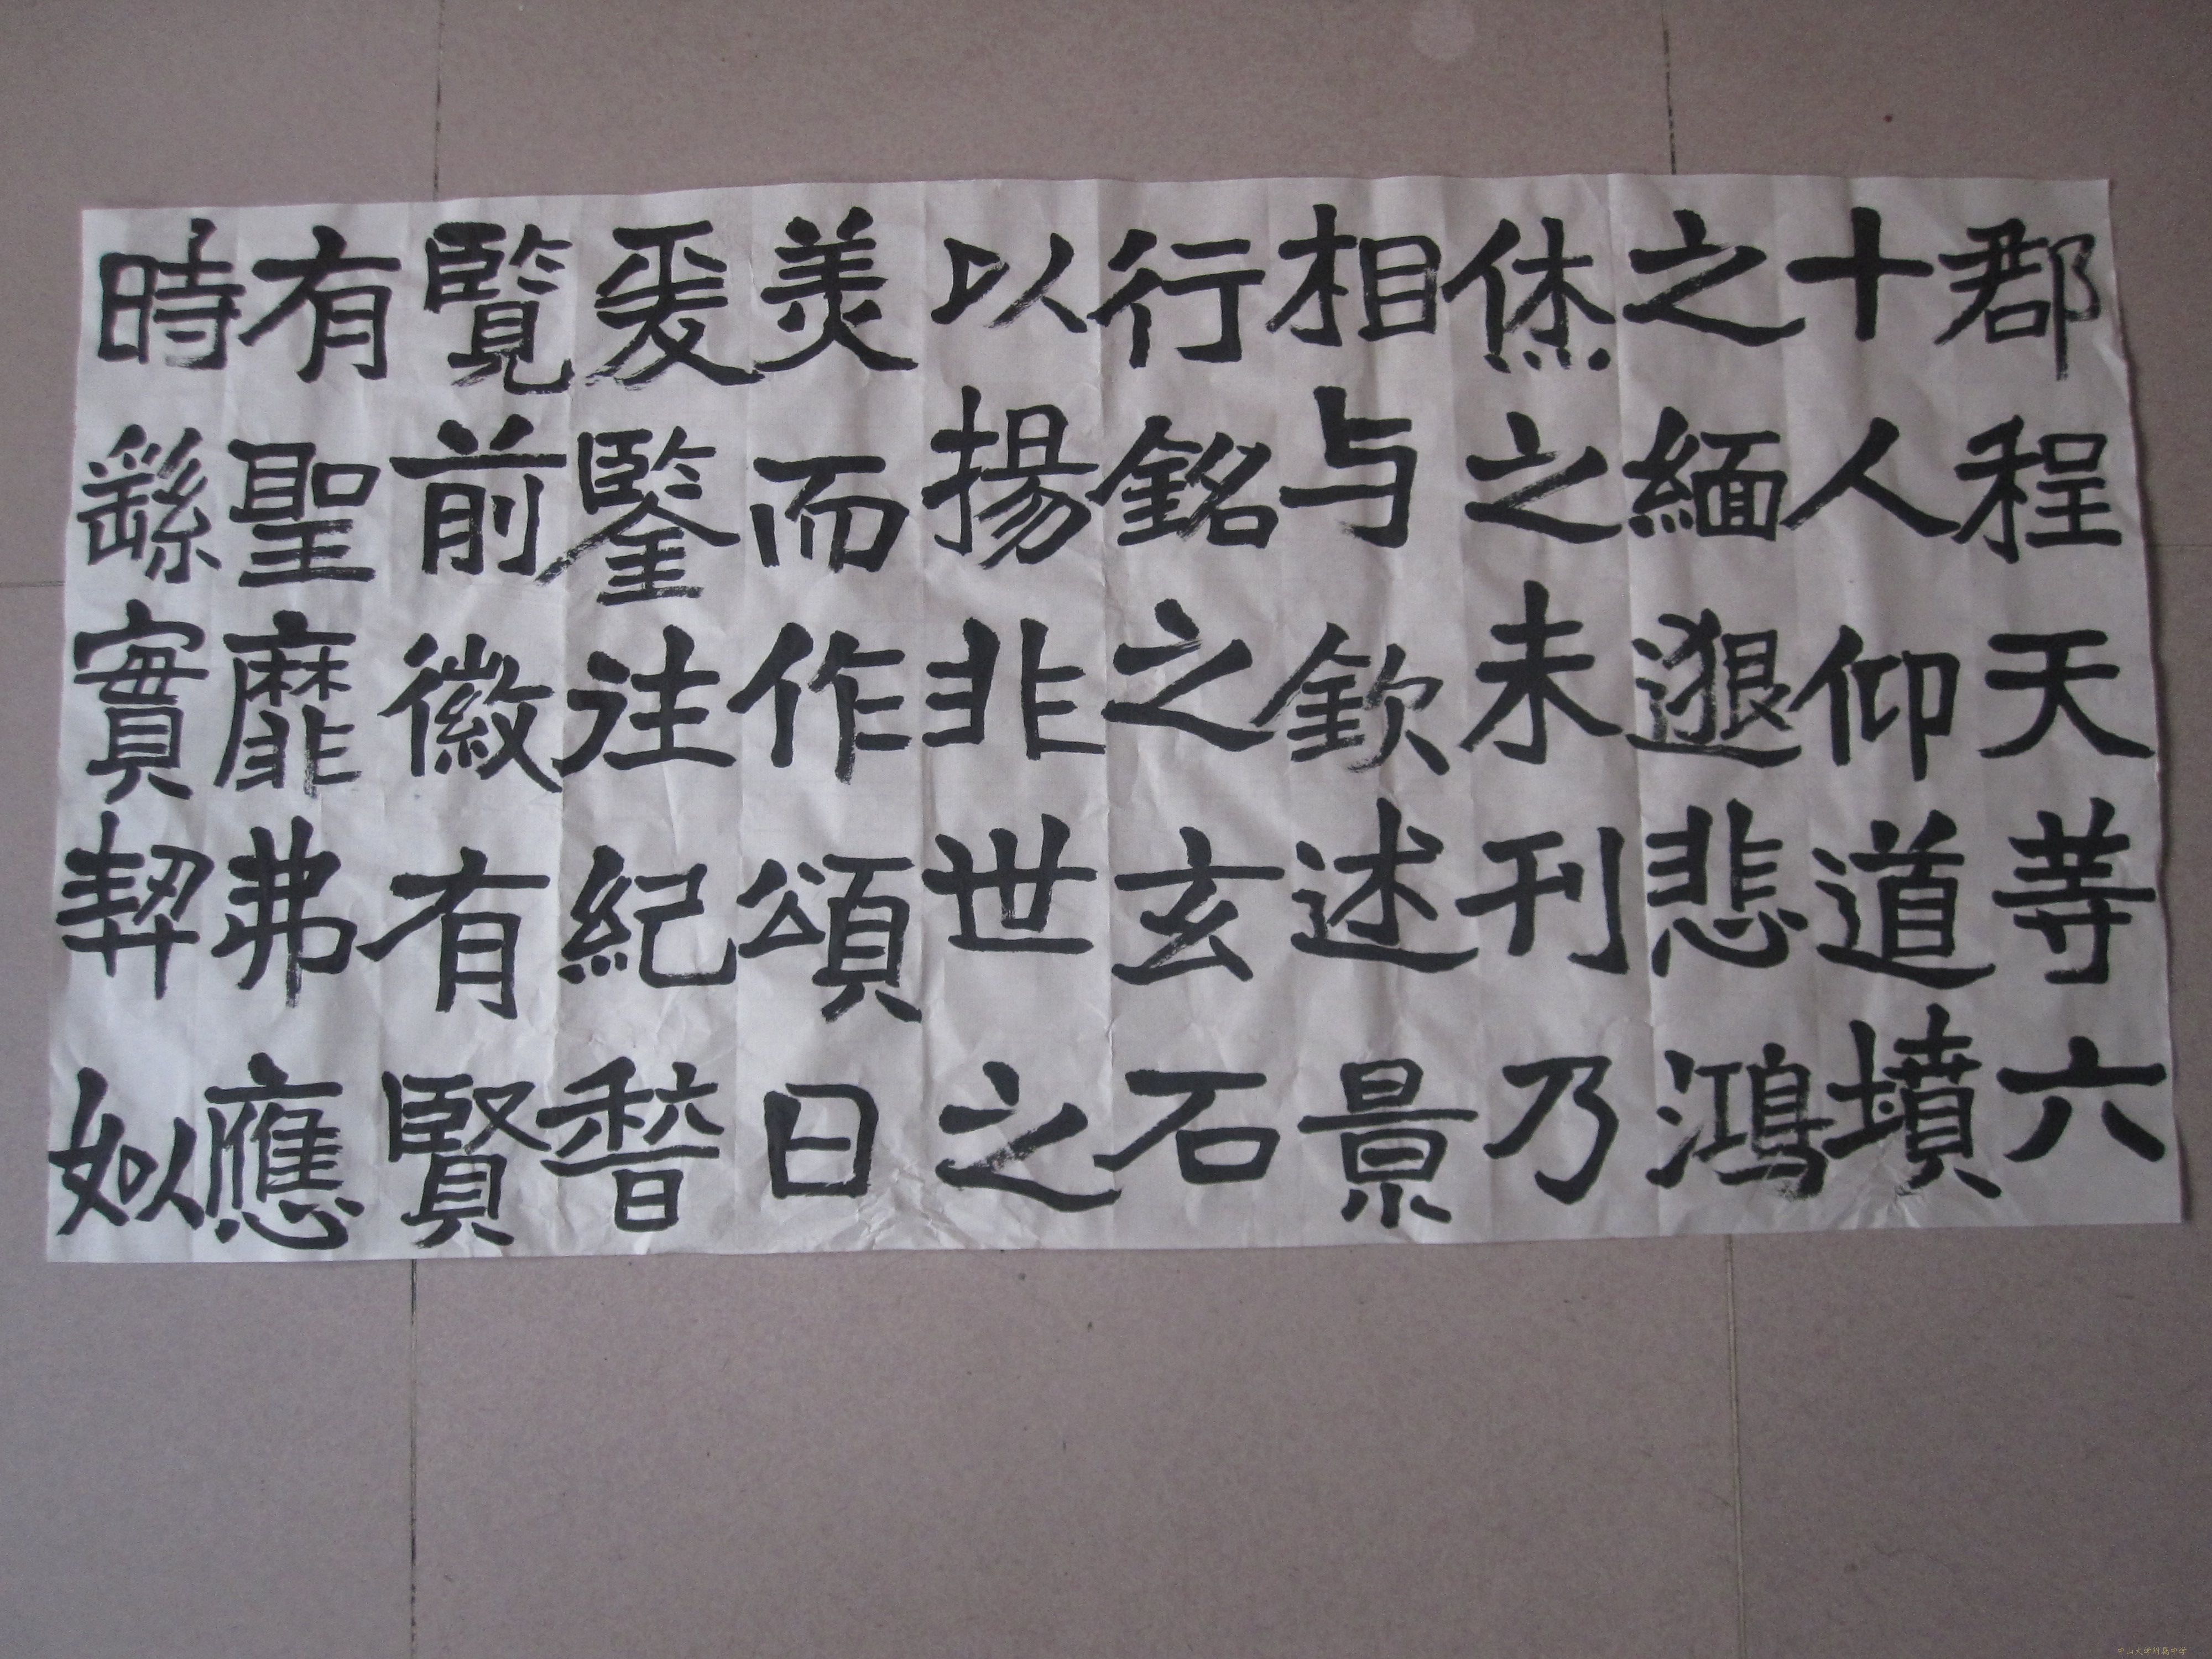 郡程天等六
十人仰道墳
之緬邈悲鴻
休之未刊乃
相与欽述景
行銘之玄石
以揚非世之
美而作頌曰
爰鑒往紀稽
覽前徽有賢
有聖靡弗應
時繇實契姒
中山大学附属中学